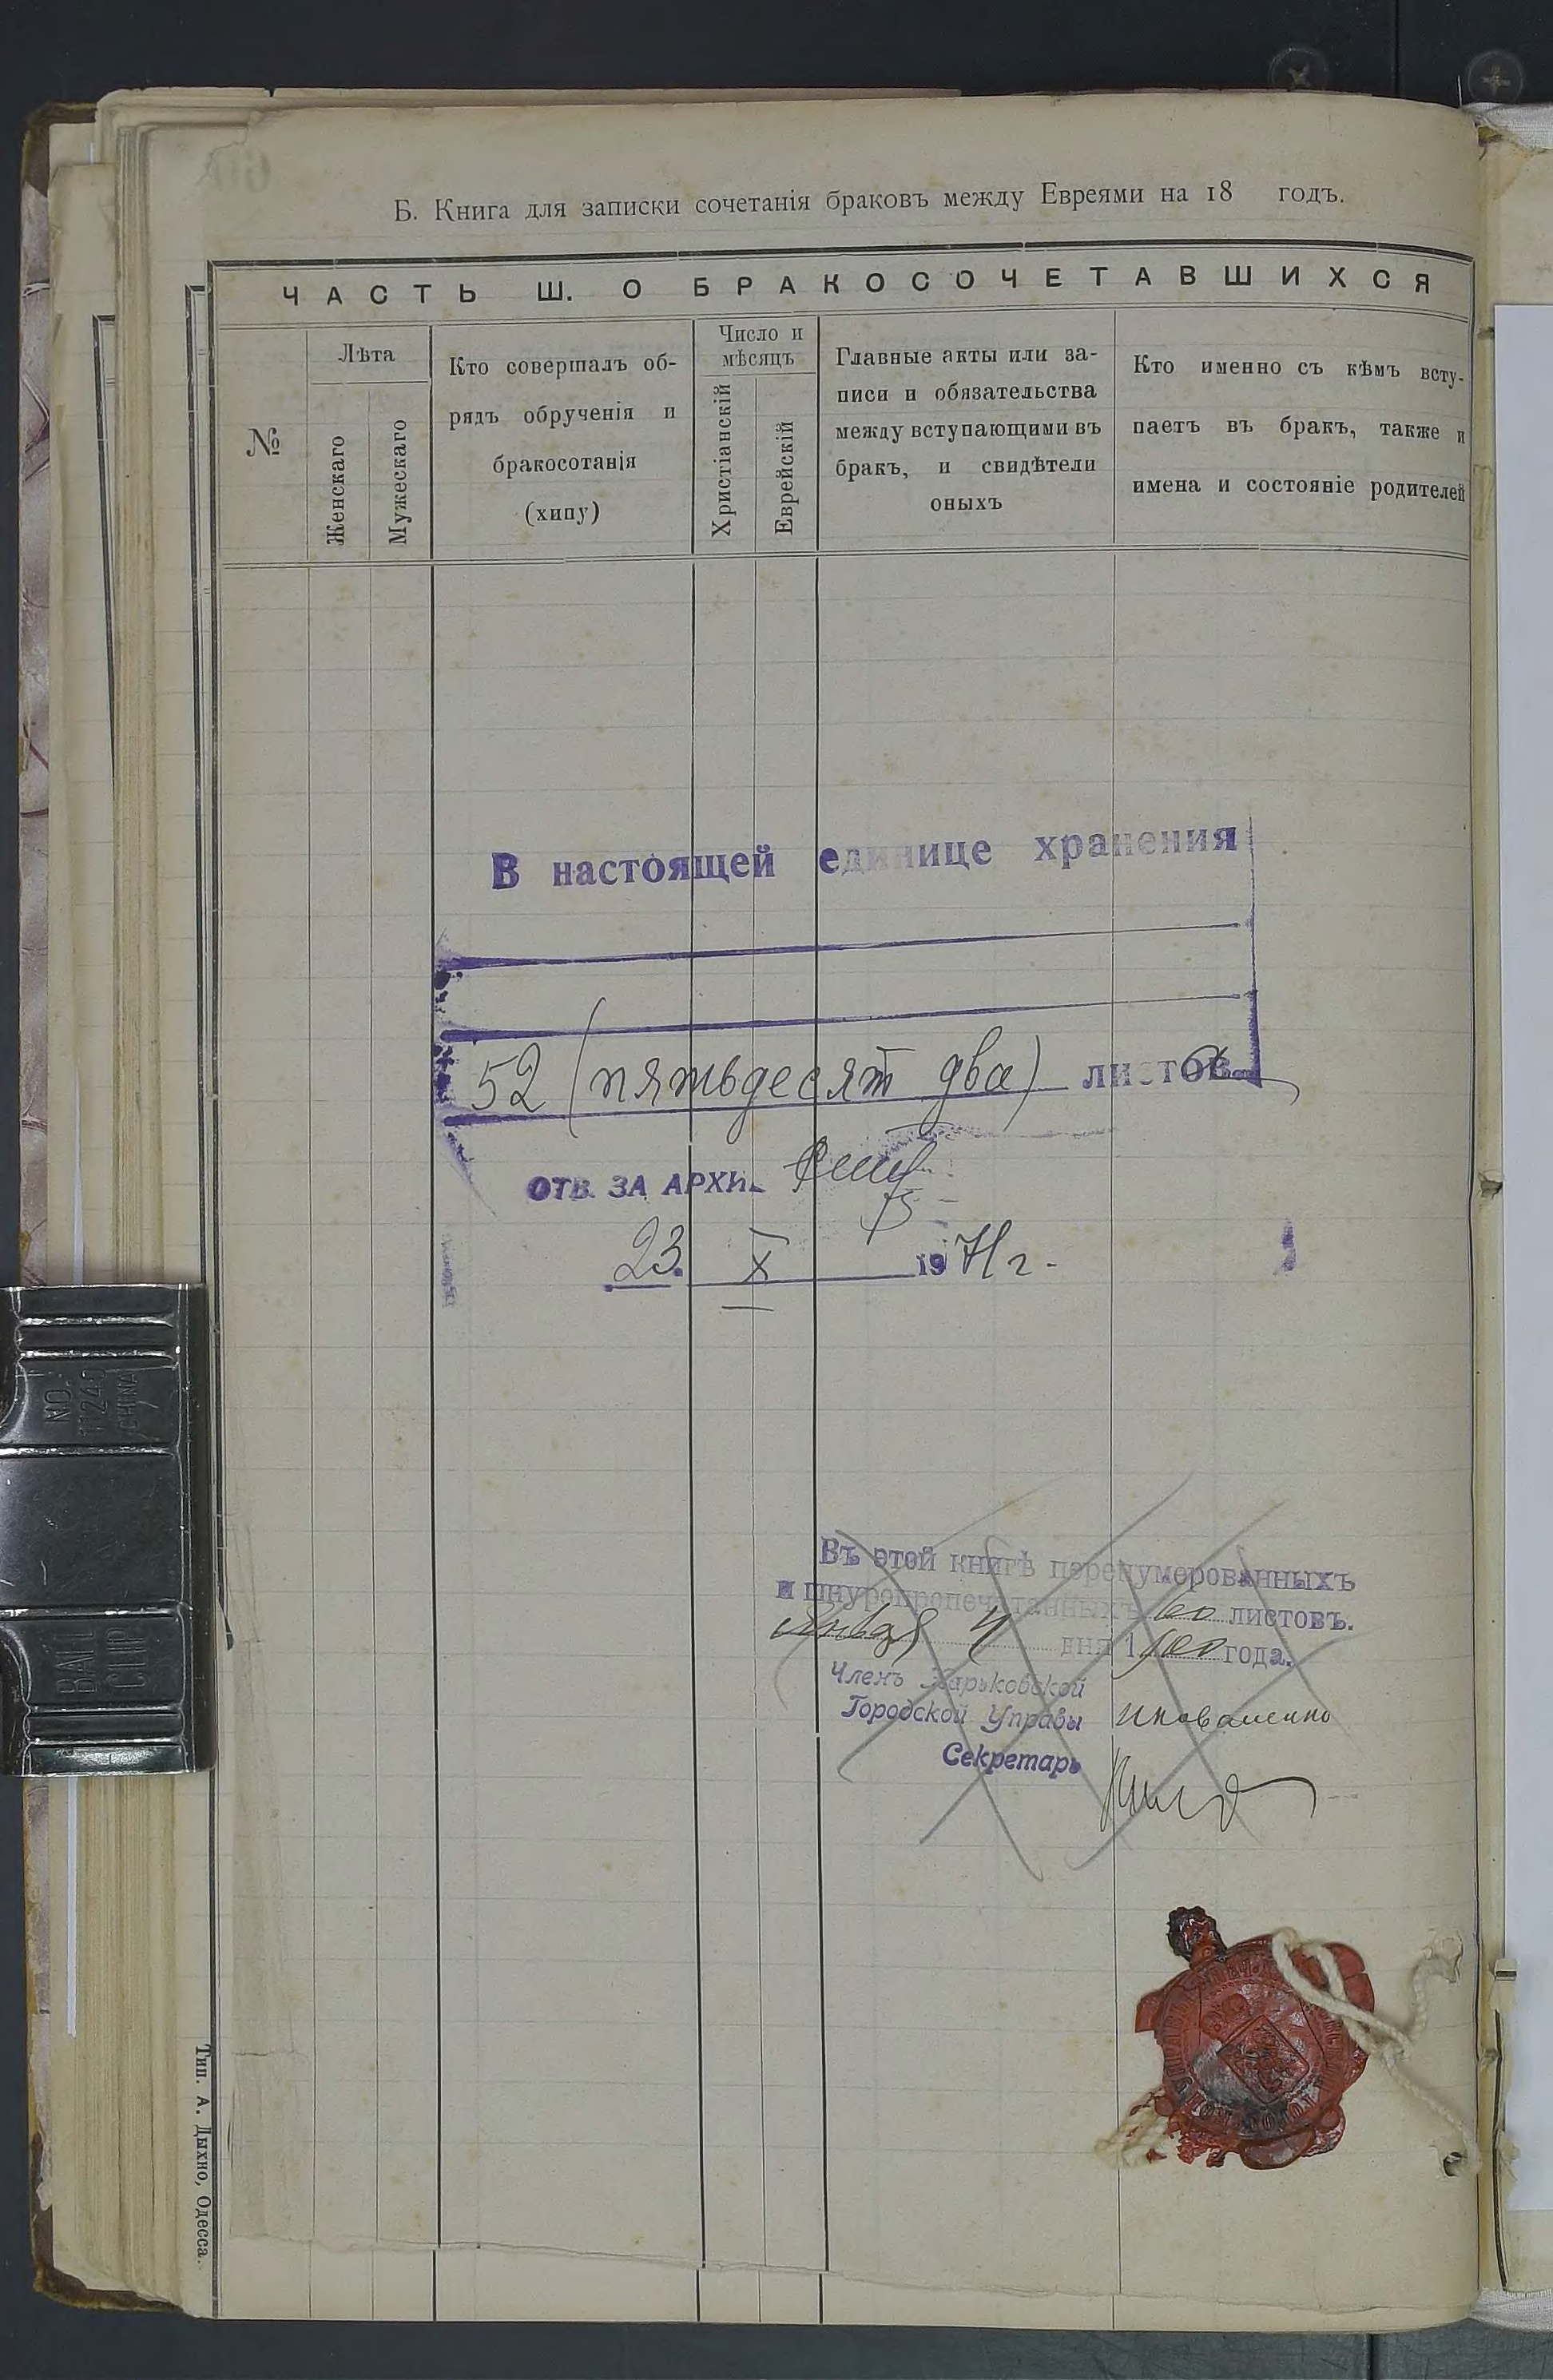 Б. Книга для записки сочетанія браковъ между Евреями на 18 годъ.
ЧАСТЬ Ш. О БРАКОСОЧЕТАВШИХСЯ
№
Лѣта
Женскаго
Мужескаго
Кто совершалъ об-
рядъ обрученія и
бракосотанія
(хипу)
Число и
мѣсяцъ
Христіанскій
Еврейскій
Главные акты или за-
писи и обязательства
между вступающими въ
бракъ, и свидѣтели
оныхъ
Кто именно съ кѣмъ всту-
паетъ въ бракъ, также и
имена и состояніе родителей
В настоящей единице хранения
52 (пятьдесят два) листов
ОТВ. ЗА АРХИ
23. X 1971 г.
Въ этой книгѣ перенумерованныхъ
и шнуропропечатанныхъ 60 листовъ.
Января 4 дня 1900 года.
Членъ Харьковской
Городской Управы
Секретарь
Тип. А. Дыхно, Одесса.
NO.
CHINA
BALL
CLIP